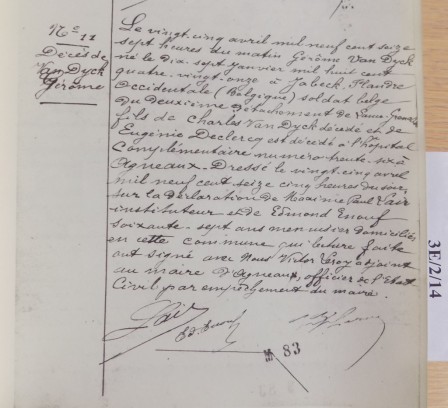 No 11
Décès de
Van Dyck
Jérôme
Le vingt-cinq avril mil neuf cent seize
sept heures du matin Jérôme Van Dyck
né le dix-sept janvier mil huit cent
quatre-vingt-onze à Jabeck, Flandre
Occidentale (Belgique) soldat belge
du deuxième détachement de
fils de Charles Van Dyck décédé et de
Eugénie Declercq est décédé à l'hôpital
complémentaire numéro trente-six à
Agneaux. Dressé le vingt-cinq avril
mil neuf cent seize cinq heures du soir,
sur la déclaration de Maxime Paul Lair
instituteur et de Edmond Enouf
soixante-sept ans menuisier domiciliés
en cette commune qui lecture faite
ont signé avec Nous Victor Leroy adjoint
au maire d'Agneaux, officier de l'Etat
Civil par empêchement du maire.
Lair
83
83
3E/2/14